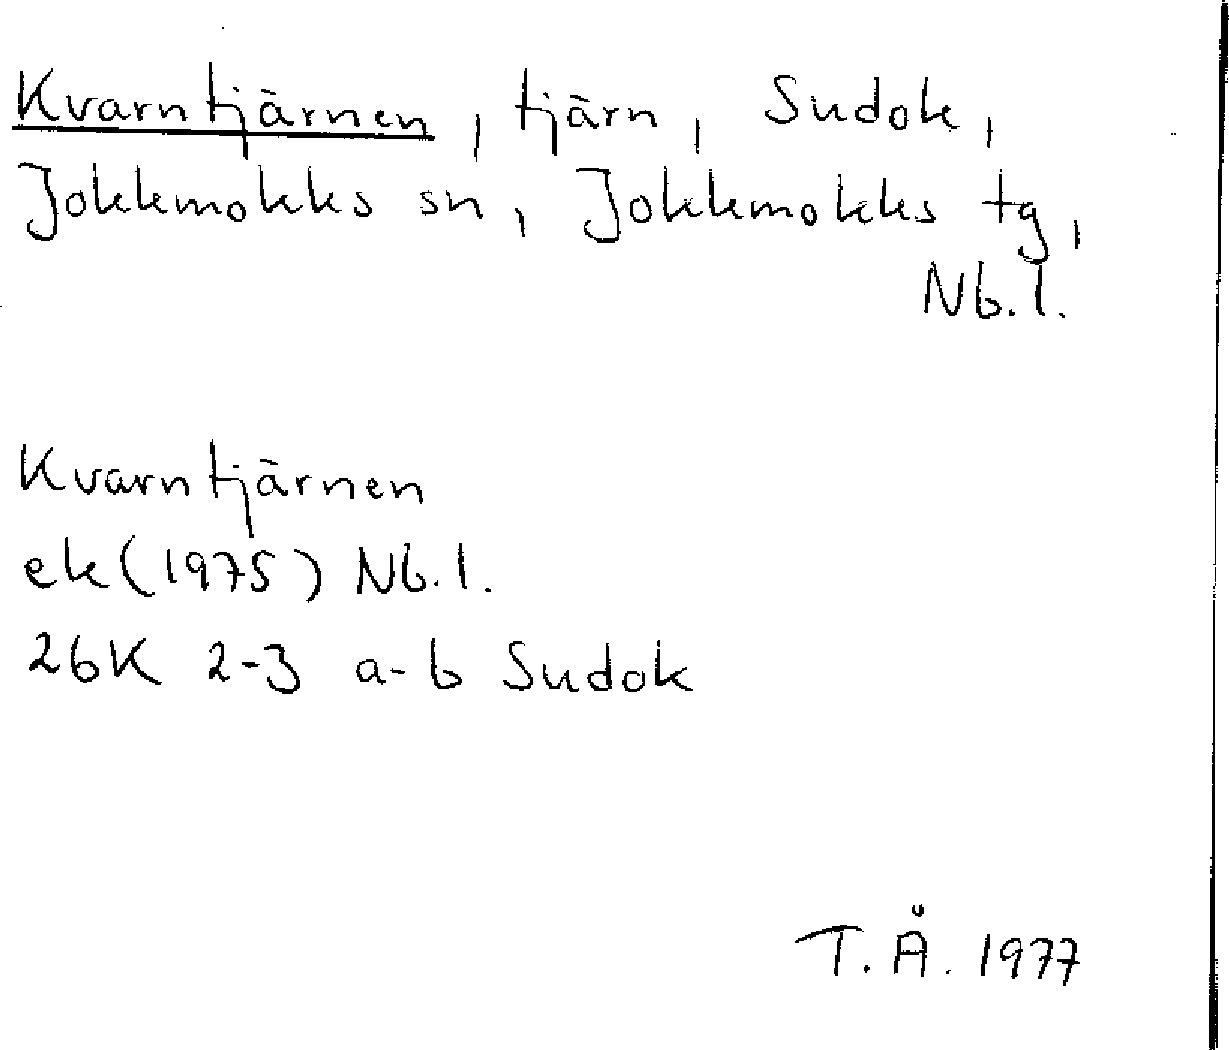 Kvarntjärnen, tjärn, Sudok,
Jokkmokks sn, Jokkmokks tg,
Nb.l.
Kvarntjärnen
ek(1975) Nb.l.
26K 2-3 a-b Sudok
T.Å. 1977